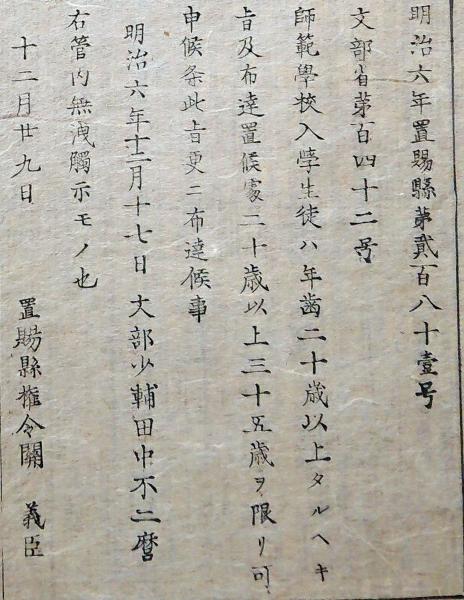 明治六年置賜縣第貳百八十壹号
文部省第百四十二号
師範學校入學生徒ハ年齒二十歳以上タルヘキ
旨及布達置候處二十歳以上三十五歳ヲ限リ可
申候条此旨更ニ布達候事
明治六年十二月十七日 文部少輔田中不二麿
右管内無洩觸示モノ也
十二月廿九日 置賜縣権令關 義臣